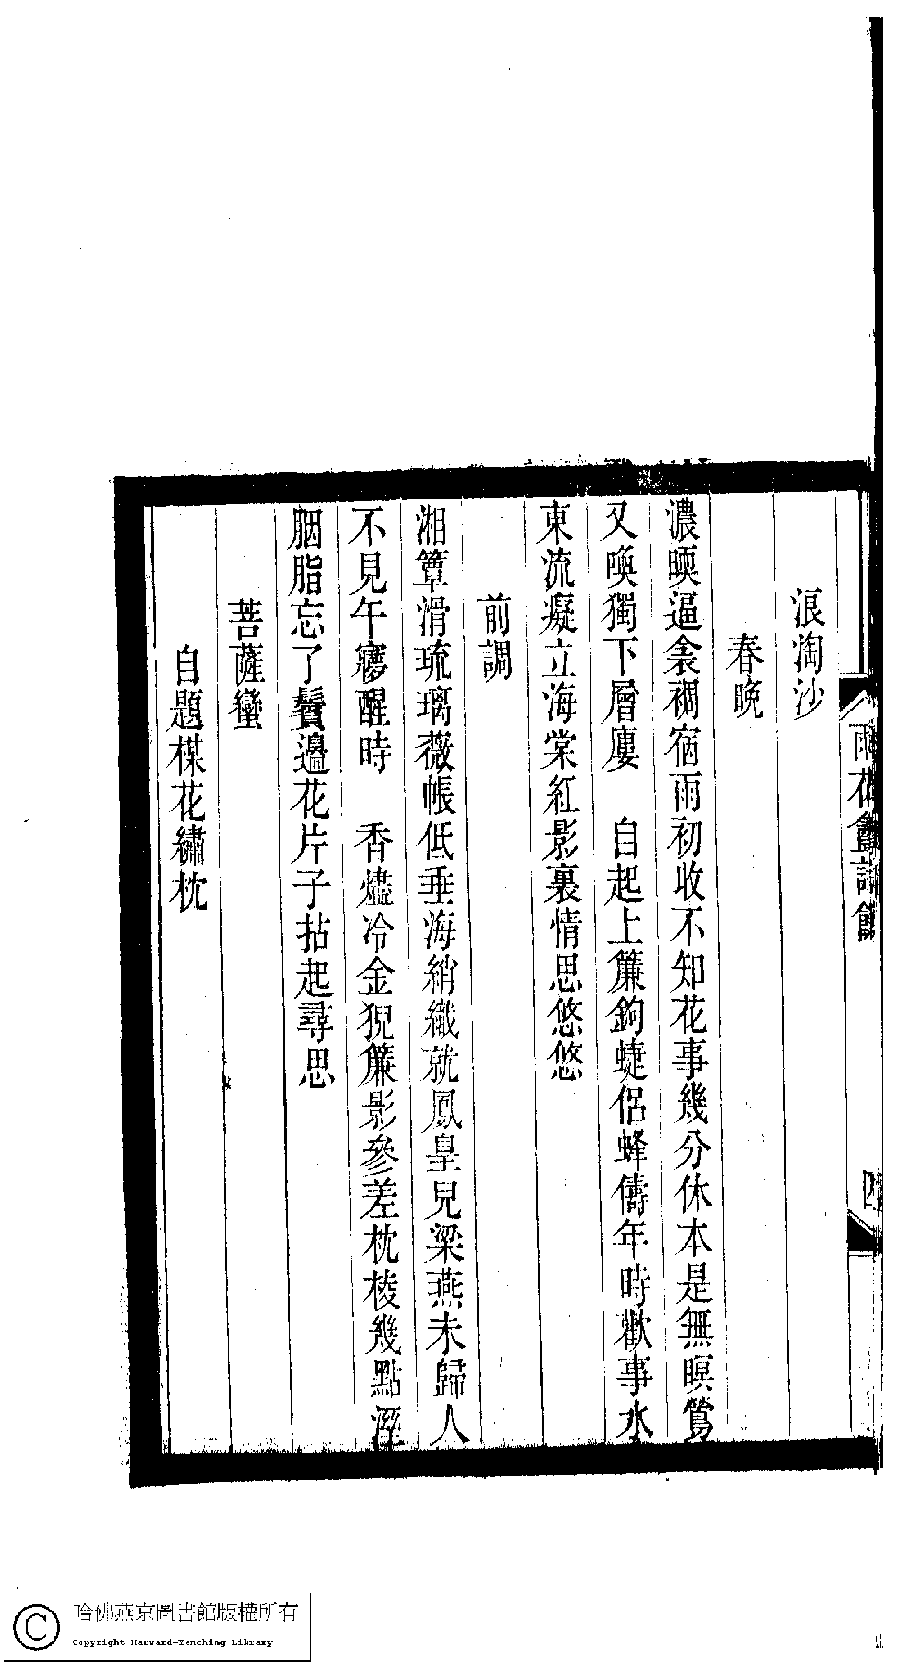 浪淘沙
春晚
濃暝逼衾裯宿雨初收不知花事幾分休本是無瞑鶯
又喚獨下層廔　自起上簾鉤蜨侶蜂儔年時歡事水
東流癡立海棠紅影裏情思悠悠
前調
湘簟滑琉璃薇帳低垂海綃織就鳳皇兒梁燕未歸人
不見午寱醒時　香燼冷金猊簾影參差枕棱幾點溼
胭脂忘了鬢邉花片子拈起尋思
菩薩蠻
自題楳花繡枕
雨花盦詩餘
四
哈佛燕京圖書館版權所有
Copyright Harvard-Yenching Library